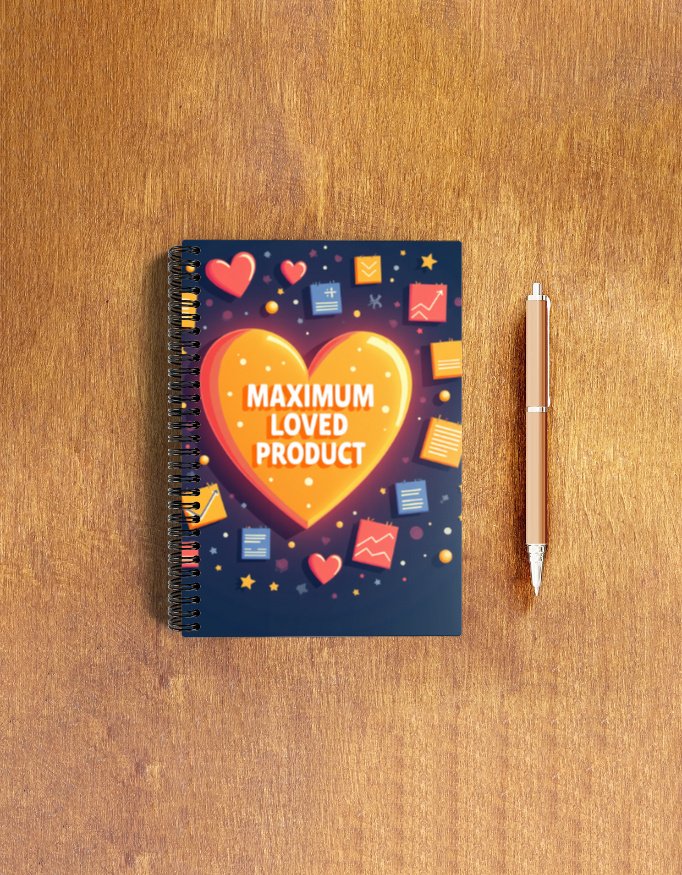 MAXIMUM
LOVED
PRODUCT